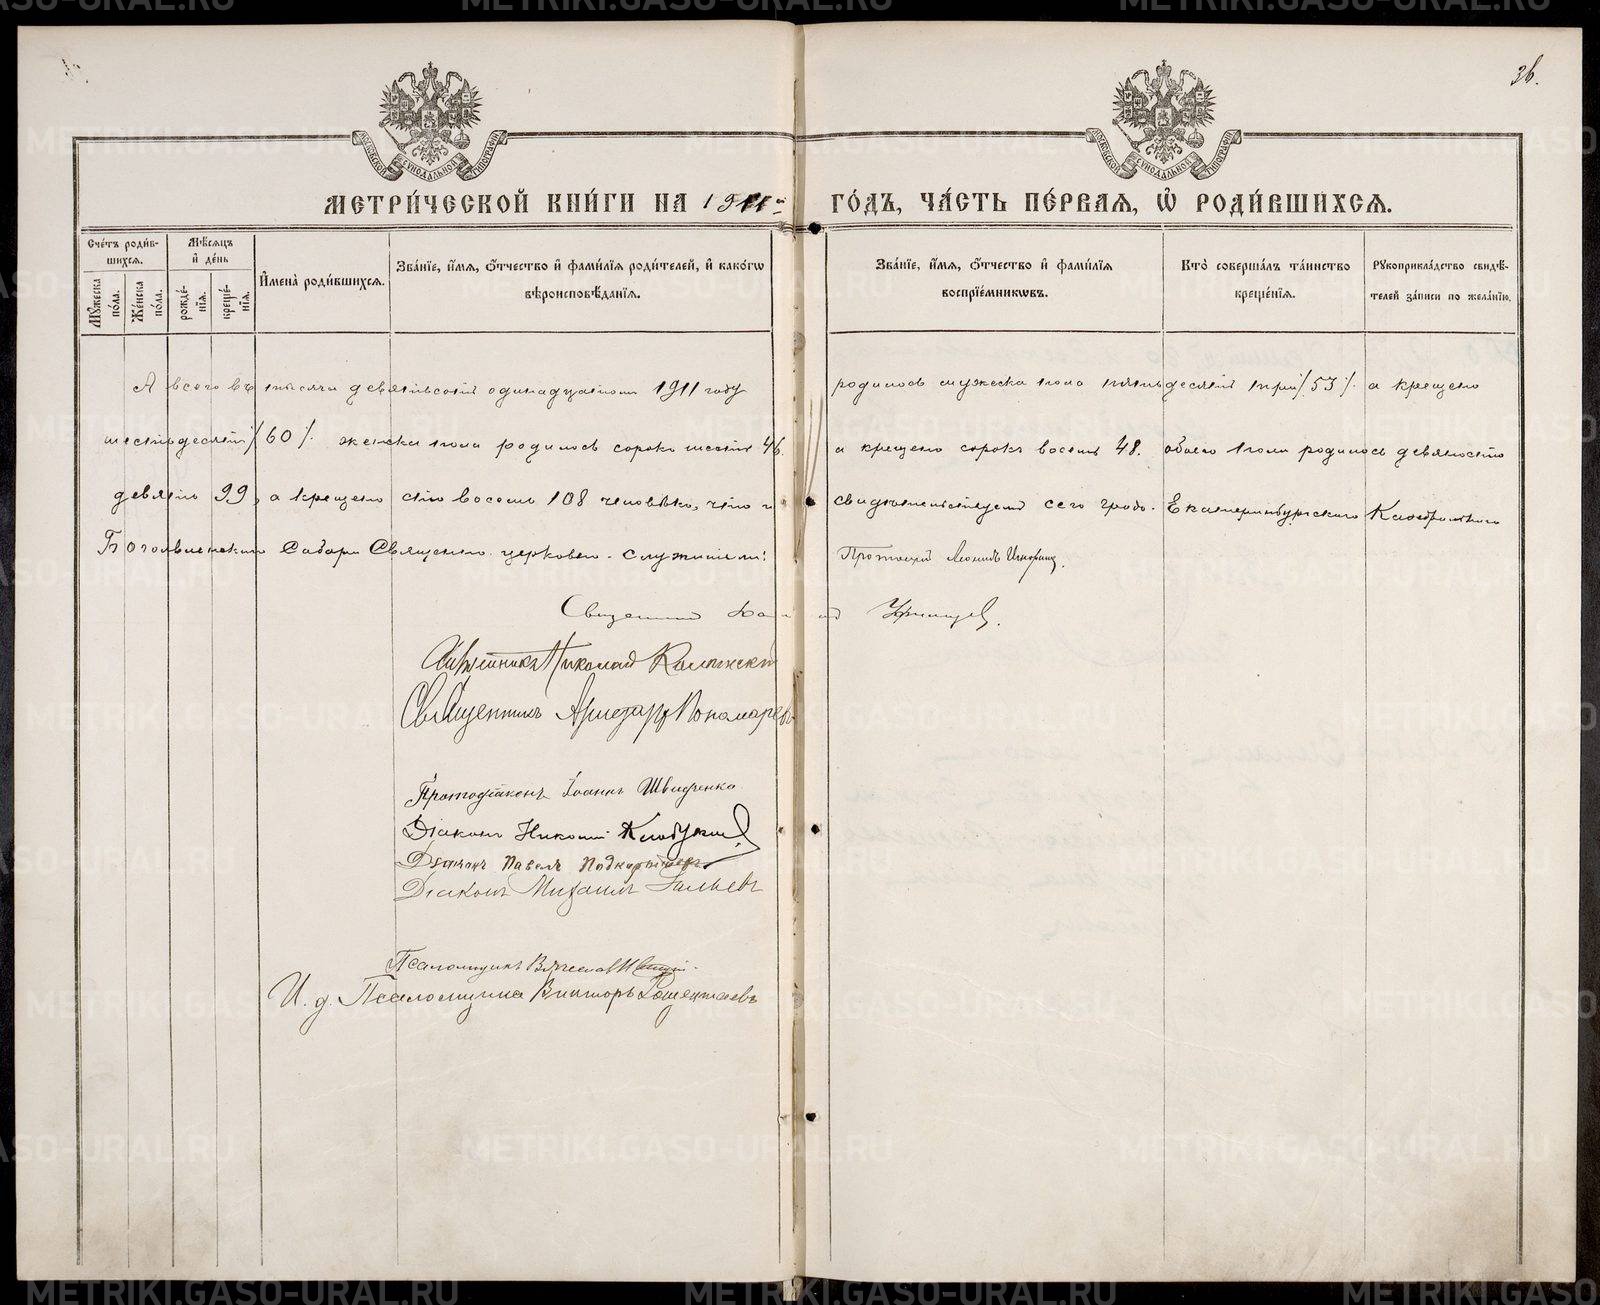 36.
МЕТРИ́ЧЕСКОЙ КНИ́ГИ НА 1911й ГО́ДЪ, ЧА́СТЬ ПЕ́РВАЯ, Ѡ҆ РОДИ́ВШИХСЯ.
Сче́тъ роди́в-
шихся.
Мꙋ́жеска по́ла.
Же́нска по́ла.
Мѣ́сяцъ
и҆ де́нь
рожде́-нїя.
креще́-нїя.
И҆мена̀ роди́вшихся.
Зва́нїе, и҆́мя, ѻ҆́тчество и҆ фамѝлїя роди́телей, и҆ како́гѡ
вѣроисповѣ́данїя.
Зва́нїе, и҆́мя, ѻ҆́тчество и҆ фамѝлїя
воспрїе́мникѡвъ.
Кто̀ соверша́лъ та́инство
креще́нїя.
Рꙋкоприкла́дство свидѣ́-
телей за́писи по жела́нїю.
А всего въ тысяча девятьсотъ одинадцатомъ 1911 году родилось мужеска пола пятьдесятъ три /53/. а крещено
шестьдесятъ /60/. женска пола родилось сорокъ шесть 46. а крещено сорокъ восемь 48. обоего пола родилось девяносто
девять 99, а крещено сто восемь 108 человѣкъ, что и свидѣтельствуемъ сего градо- Екатеринбургскаго Каѳедральнаго
Богоявленскаго Собора Священно. церковно- служители: Протоіерей Леонидъ Игноратовъ.
Священникъ
Священникъ Николай
Священникъ Аристархъ Пономаревъ
Протодіаконъ Іоаннъ Швидченко
Діаконъ Николай
Діаконъ Павелъ Подкорытовъ
Діаконъ Михаилъ
Псаломщикъ Вячеславъ
И. д. Псаломщика Викторъ
МОСКОВСКОЙ СѴНОДАЛЬНОЙ ТИПОГРАФІИ
МОСКОВСКОЙ СѴНОДАЛЬНОЙ ТИПОГРАФІИ
METRIKI.GASO-URAL.RU